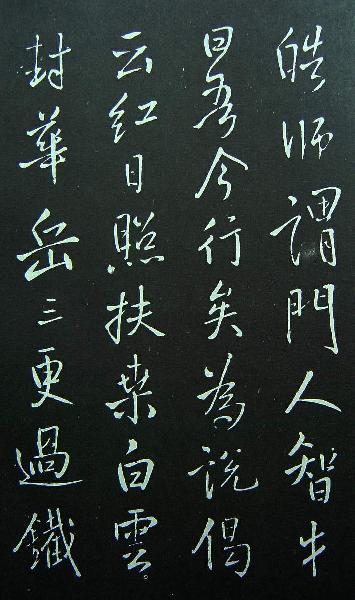 皓師謂門人智
曰吾今行矣為說偈
云紅日照扶桑白雲
封華岳三更過鐵